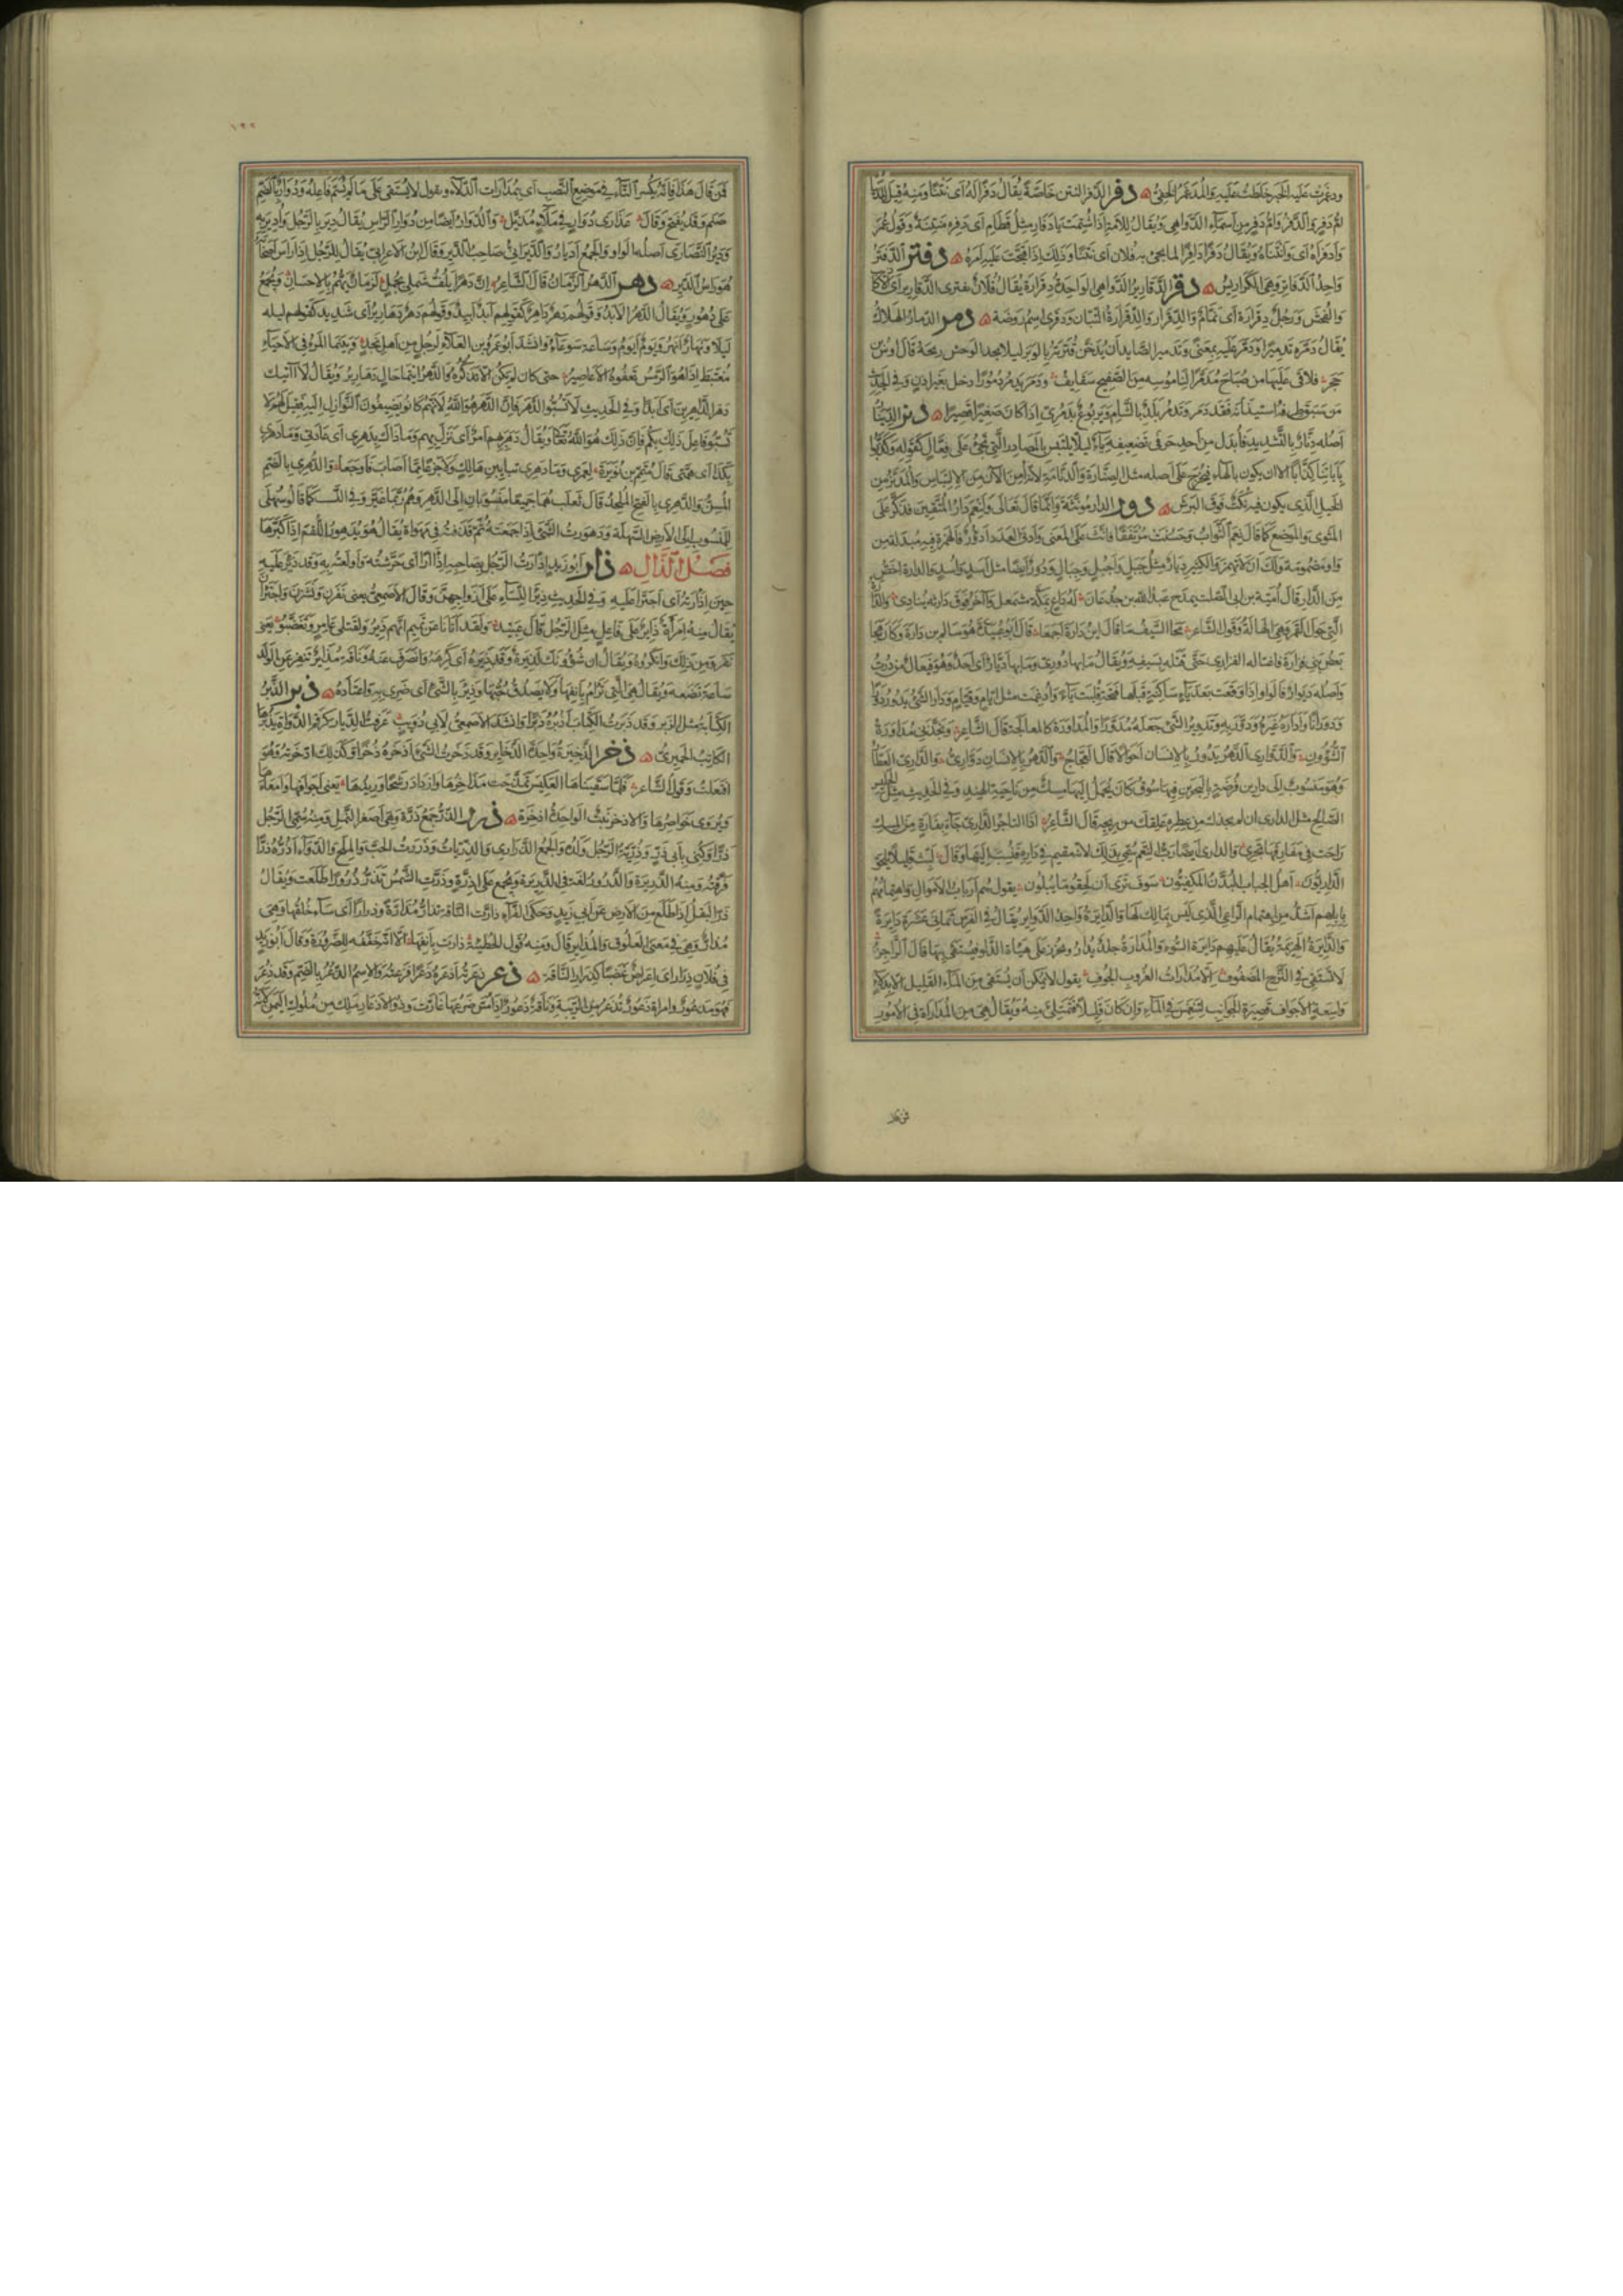 ودغمرت عليه الخبر خلطت عليه والمدغمر الخفى دفر الدفر النتن خاصة يقال دفرا له اى نتنا ومنه قيل للدنيا
ام دفر والدفر وام دفر من اسماء الدواهى ويقال للامة اذا شتمت يا دفار مثل قطام اى دفرة منتنة وقول عمر
وادفراه اى وانتناه ويقال دفرا دافرا لما يجىء به فلان اى نتنا وذلك اذا قبحت عليه امره دفتر الدفتر
واحد الدفاتر وهى الكراريس دقر الدقارير الدواهى الواحدة دقرارة يقال فلان يفترى الدقارير اى الاكاذيب
والفحش ورجل دقرارة اى نمام والدقرار والدقرارة التبان ودقرى اسم روضة دمر الدمار الهلاك
يقال دمره تدميرا ودمر عليه بمعنى وتدمير الصايد ان يدخن قترته بالوبر ليلا يجد الوحش ريحه قال اوس بن
حجر فلاقى عليها من صباح مدمرا لناموسه من الصفيح سقايف ودمر يدمر دمورا دخل بغير اذن وفى الحديث
من سبق طرفه استيذانه فقد دمر وتدمر بلد بالشام ويربوع تدمرى اذا كان صغيرا قصيرا دنر الدينار
اصله دنار بالتشديد فابدل من احد حرفى تضعيفه ياء ليلا يلتبس بالمصادر التى تجىء على فعال كقوله وكذبوا
باياتنا كذابا الا ان يكون بالهاء فيخرج على اصله مثل الصنارة والدنامة لانه امن الآن من الالتباس والمدنر من
الخيل الذى يكون فيه نكت فوق البرش دور الدار مونثة وانما قال تعالى ولنعم دار المتقين فذكر على
المثوى والموضع كما قال نعم الثواب وحسنت مرتفقا فانث على المعنى وادنى العدد ادؤر فالهمزة فيه مبدلة من
واو مضمومة ولك ان لا تهمز والكثير ديار مثل جبل واجبل وجبال ودور ايضا مثل اسد واسد والدارة اخص
من الدار قال امية بن ابى الصلت يمدح عبد الله بن جدعان له داع بمكة مشمعل وآخر فوق دارته ينادى والدارة
التى حول القمر وهى الهالة وقول الشاعر محا السيف ما قال ابن دارة اجمعا قال ابو عبيدة هو سالم بن دارة وكان هجا
بعض بنى فزارة فاغتاله الفزارى حتى قتله بسيفه ويقال ما بها دورى وما بها ديار اى احد وهو فيعال من درت
واصله ديوار فالواو اذا وقعت بعد ياء ساكنة قبلها فتحة قلبت ياء وادغمت مثل ايام وقيام ودار الشىء يدور دورا
ودورانا واداره غيره ودور به وتدوير الشىء جعله مدورا والمداورة كالمعالجة قال الشاعر ونجذنى مداورة
الشؤون والدوارى الدهر يدور بالانسان احوالا قال العجاج والدهر بالانسان دوارى والدارى العطار
وهو منسوب الى دارين فرضة بالبحرين فيها سوق كان يحمل اليها مسك من ناحية الهند وفى الحديث مثل الجليس
الصالح مثل الدارى ان لم يحذك من عطره علقك من ريحه قال الشاعر اذا التاجر الدارى جاء بفارة من المسك
راحت فى مفارقها تجرى والدارى ايضا رب النعم سمى بذلك لانه مقيم فى داره فنسب اليها وقال لبث قليلا يلحق
الداريون اهل الجباب البدن المكفيون سوف ترى ان لحقوا ما يبلون يقول هم ارباب الاموال واهتمامهم
بابلهم اشد من اهتمام الراعى الذى ليس بمالك لها والدايرة واحد الدواير يقال فى الفرس ثمانى عشرة دايرة
والدايرة الهزيمة يقال عليهم دايرة السوء والمدارة جلد يدار ويخرز على هيئة الدلو فيستقى بها قال الراجز
لا تستقى فى النزح المضفوف الا مدارات الغروب الجوف يقول لا يمكن ان يستقى من الماء القليل الا بدلاء
واسعة الاجواف قصيرة الجوانب لتنغمس فى الماء وان كان قليلا فتمتلئ منه ويقال هى من المداراة فى الامور
فمن قال
١٢٢
فمن قال هذا فانه يكسر التاء فى موضع النصب اى بمدارات الدلاء ويقول لا يستقى على ما لم يسم فاعله ودوار بالضم
صنم وقد يفتح وقال عذارى دوار فى ملاء مذيل والدوار ايضا من دوار الراس يقال دير بالرجل وادير به
ودير النصارى اصله الواو والجمع اديار والديرانى صاحب الدير وقال ابن الاعرابى يقال للرجل اذا راس اصحابه
هو راس الدير دهر الدهر الزمان قال الشاعر ان دهرا يلف شملى بجمل لزمان يهم بالاحسان ويجمع
على دهور ويقال الدهر الابد وقولهم دهر داهر كقولهم ابد ابيد وقولهم دهر دهارير اى شديد كقولهم ليلة
ليلاء ونهار انهر ويوم ايوم وساعة سوعاء وانشد ابو عمرو بن العلاء لرجل من اهل نجد وبينما المرء فى الاحياء
مغتبط اذا هو الرمس تعفوه الاعاصير حتى كان لم يكن الا تذكره والدهر ايتما حال دهارير ويقال لا آتيك
دهر الداهرين اى ابدا وفى الحديث لا تسبوا الدهر فان الدهر هو الله لانهم كانوا يضيفون النوازل اليه فقيل لهم لا
تسبوا فاعل ذلك بكم فان ذلك هو الله تعالى ويقال دهر بهم امر اى نزل بهم وما ذاك بدهرى اى عادتى وما دهرى
بكذا اى همتى قال متمم بن نويرة لعمرى وما دهرى بتابين هالك ولا جزعا مما اصاب فاوجعا والدهرى بالضم
المسن والدهرى بالفتح الملحد قال ثعلب هما جميعا منسوبان الى الدهر وهم ربما غيروا فى النسب كما قالوا سهلى
للمنسوب الى الارض السهلة ودهورت الشىء اذا جمعته ثم قذفته فى مهواة يقال هو يدهور اللقم اذا كبرها
فصل الذال ذار ابو زيد اذارت الرجل بصاحبه اذآرا اى حرشته واولعته به وقد ذئر عليه
حين اذارته اى اجترا عليه وفى الحديث ذئر النساء على ازواجهن وقال الاصمعى يعنى نفرن ونشزن واجتران
يقال منه امراة ذائر على فاعل مثل الرجل قال عبيد ولقد اتانا عن تميم انهم ذئروا لقتلى عامر وتغضبوا يعنى
نفروا من ذلك وانكروه ويقال ان شؤونك لذئرة وقد ذئره اى كرهه وانصرف عنه وناقة مذائر تنفر عن الولد
ساعة تضعه ويقال هى التى ترام بانفها ولا يصدق حبها وذئر بالشىء اى ضرى به واعتاده ذبر الذبر
الكتابة مثل الزبر وقد ذبرت الكتاب اذبره ذبرا وانشد الاصمعى لابى ذويب عرفت الديار كرقم الدواة يذبرها
الكاتب الحميرى ذخر الذخيرة واحدة الذخاير وقد ذخرت الشىء اذخره ذخرا وكذلك اذخرته وهو
افتعلت وقول الشاعر فلما سقيناها العكيس تمذحت مذاخرها وازداد رشحا وريدها يعنى اجوافها وامعاءها
ويروى خواصرها والاذخر نبت الواحدة اذخرة ذرر الذر جمع ذرة وهى اصغر النمل ومنه سمى الرجل
ذرا وكنى بابى ذر وذرية الرجل ولده والجمع الذرارى والذريات وذررت الحب والملح والدواء اذره ذرا
فرقته ومنه الذريرة والذرور لغة فى الذريرة ويجمع على اذرة وذرت الشمس تذر ذرورا طلعت ويقال
ذر البقل اذا طلع من الارض عن ابى زيد وحكى الفراء ذارت الناقة تذار مذارة وذرارا اى ساء خلقها وهى
مذار وهى فى معنى العلوق والمذاير قال ومنه قول الحطيئة ذارت بانفها الا انه خففه للضرورة وقال ابو زيد
فى فلان ذرار اى اعراض غضبا كذرار الناقة ذعر ذعرته اذعره ذعرا افزعته والاسم الذعر بالضم وقد ذعر
فهو مذعور وامراة ذعور تذعر من الريبة وناقة ذعور اذا مس ضرعها غارت وذو الاذعار ملك من ملوك اليمن لانه